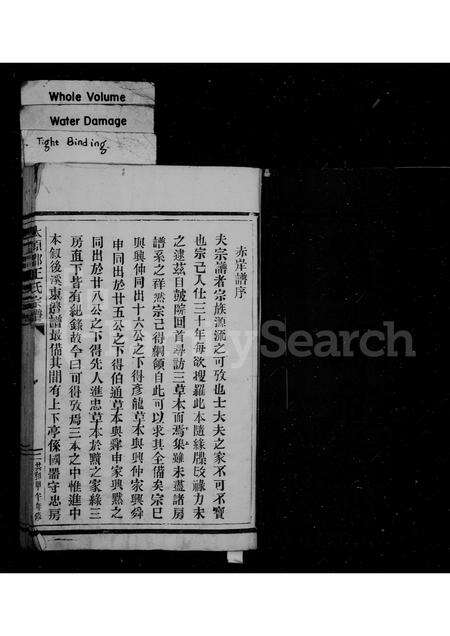 Whole Volume
Water Damage
Tight Binding
赤岸譜序
夫宗譜者宗族源流之可攷也士大夫之家不可不寶
也宗己人仕三十年每欲搜羅此本隨緣牒攷祿力未
之逮茲自皖院回首尋訪三草本而焉集雖未盡諸房
譜系之祥然宗己得綱領自此可以求其全備矣宗己
與興仲同出十六公之下得彥龍草本與興仲家興舜
申同出於廿五公之下得伯通草本與舜申家興黙之
同出於廿八公之下得先人進忠草本於黙之家緣三
房直下皆有紀錄故今曰可得攷焉三本之中惟進中
本叙後溪東磨譜最備其間有上下亭係國器守忠房
太原郡王氏宗譜
FamilySearch